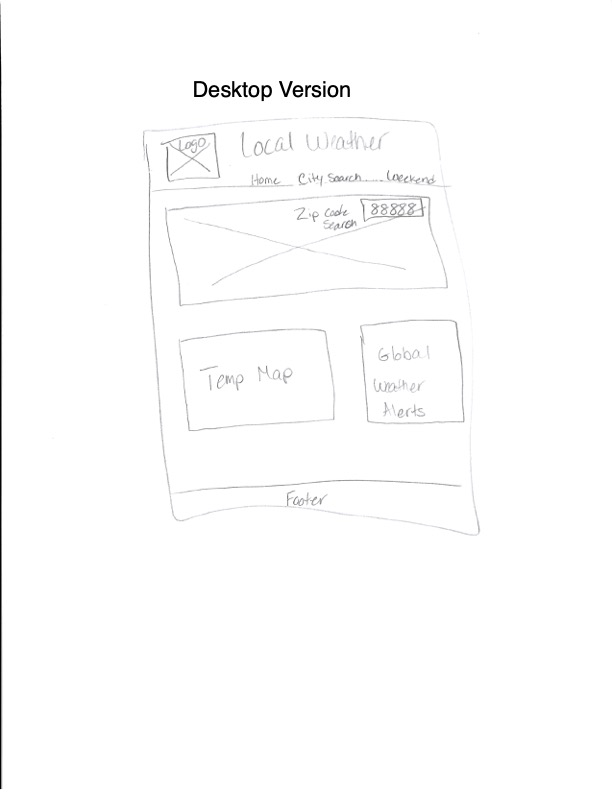 Desktop Version
Logo
Local Weather
Home City Search Weekend
Zip Code
Search
88888
Temp Map
Global
Weather
Alerts
Footer